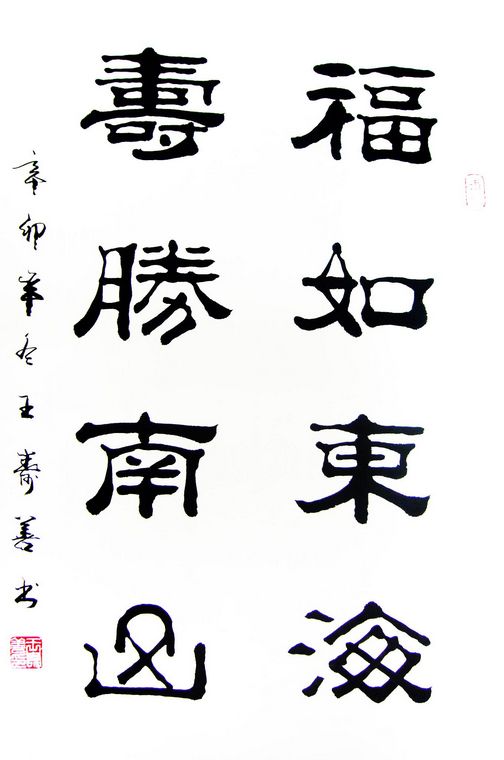 福如東海
壽勝南山
辛卯年冬王寿善书